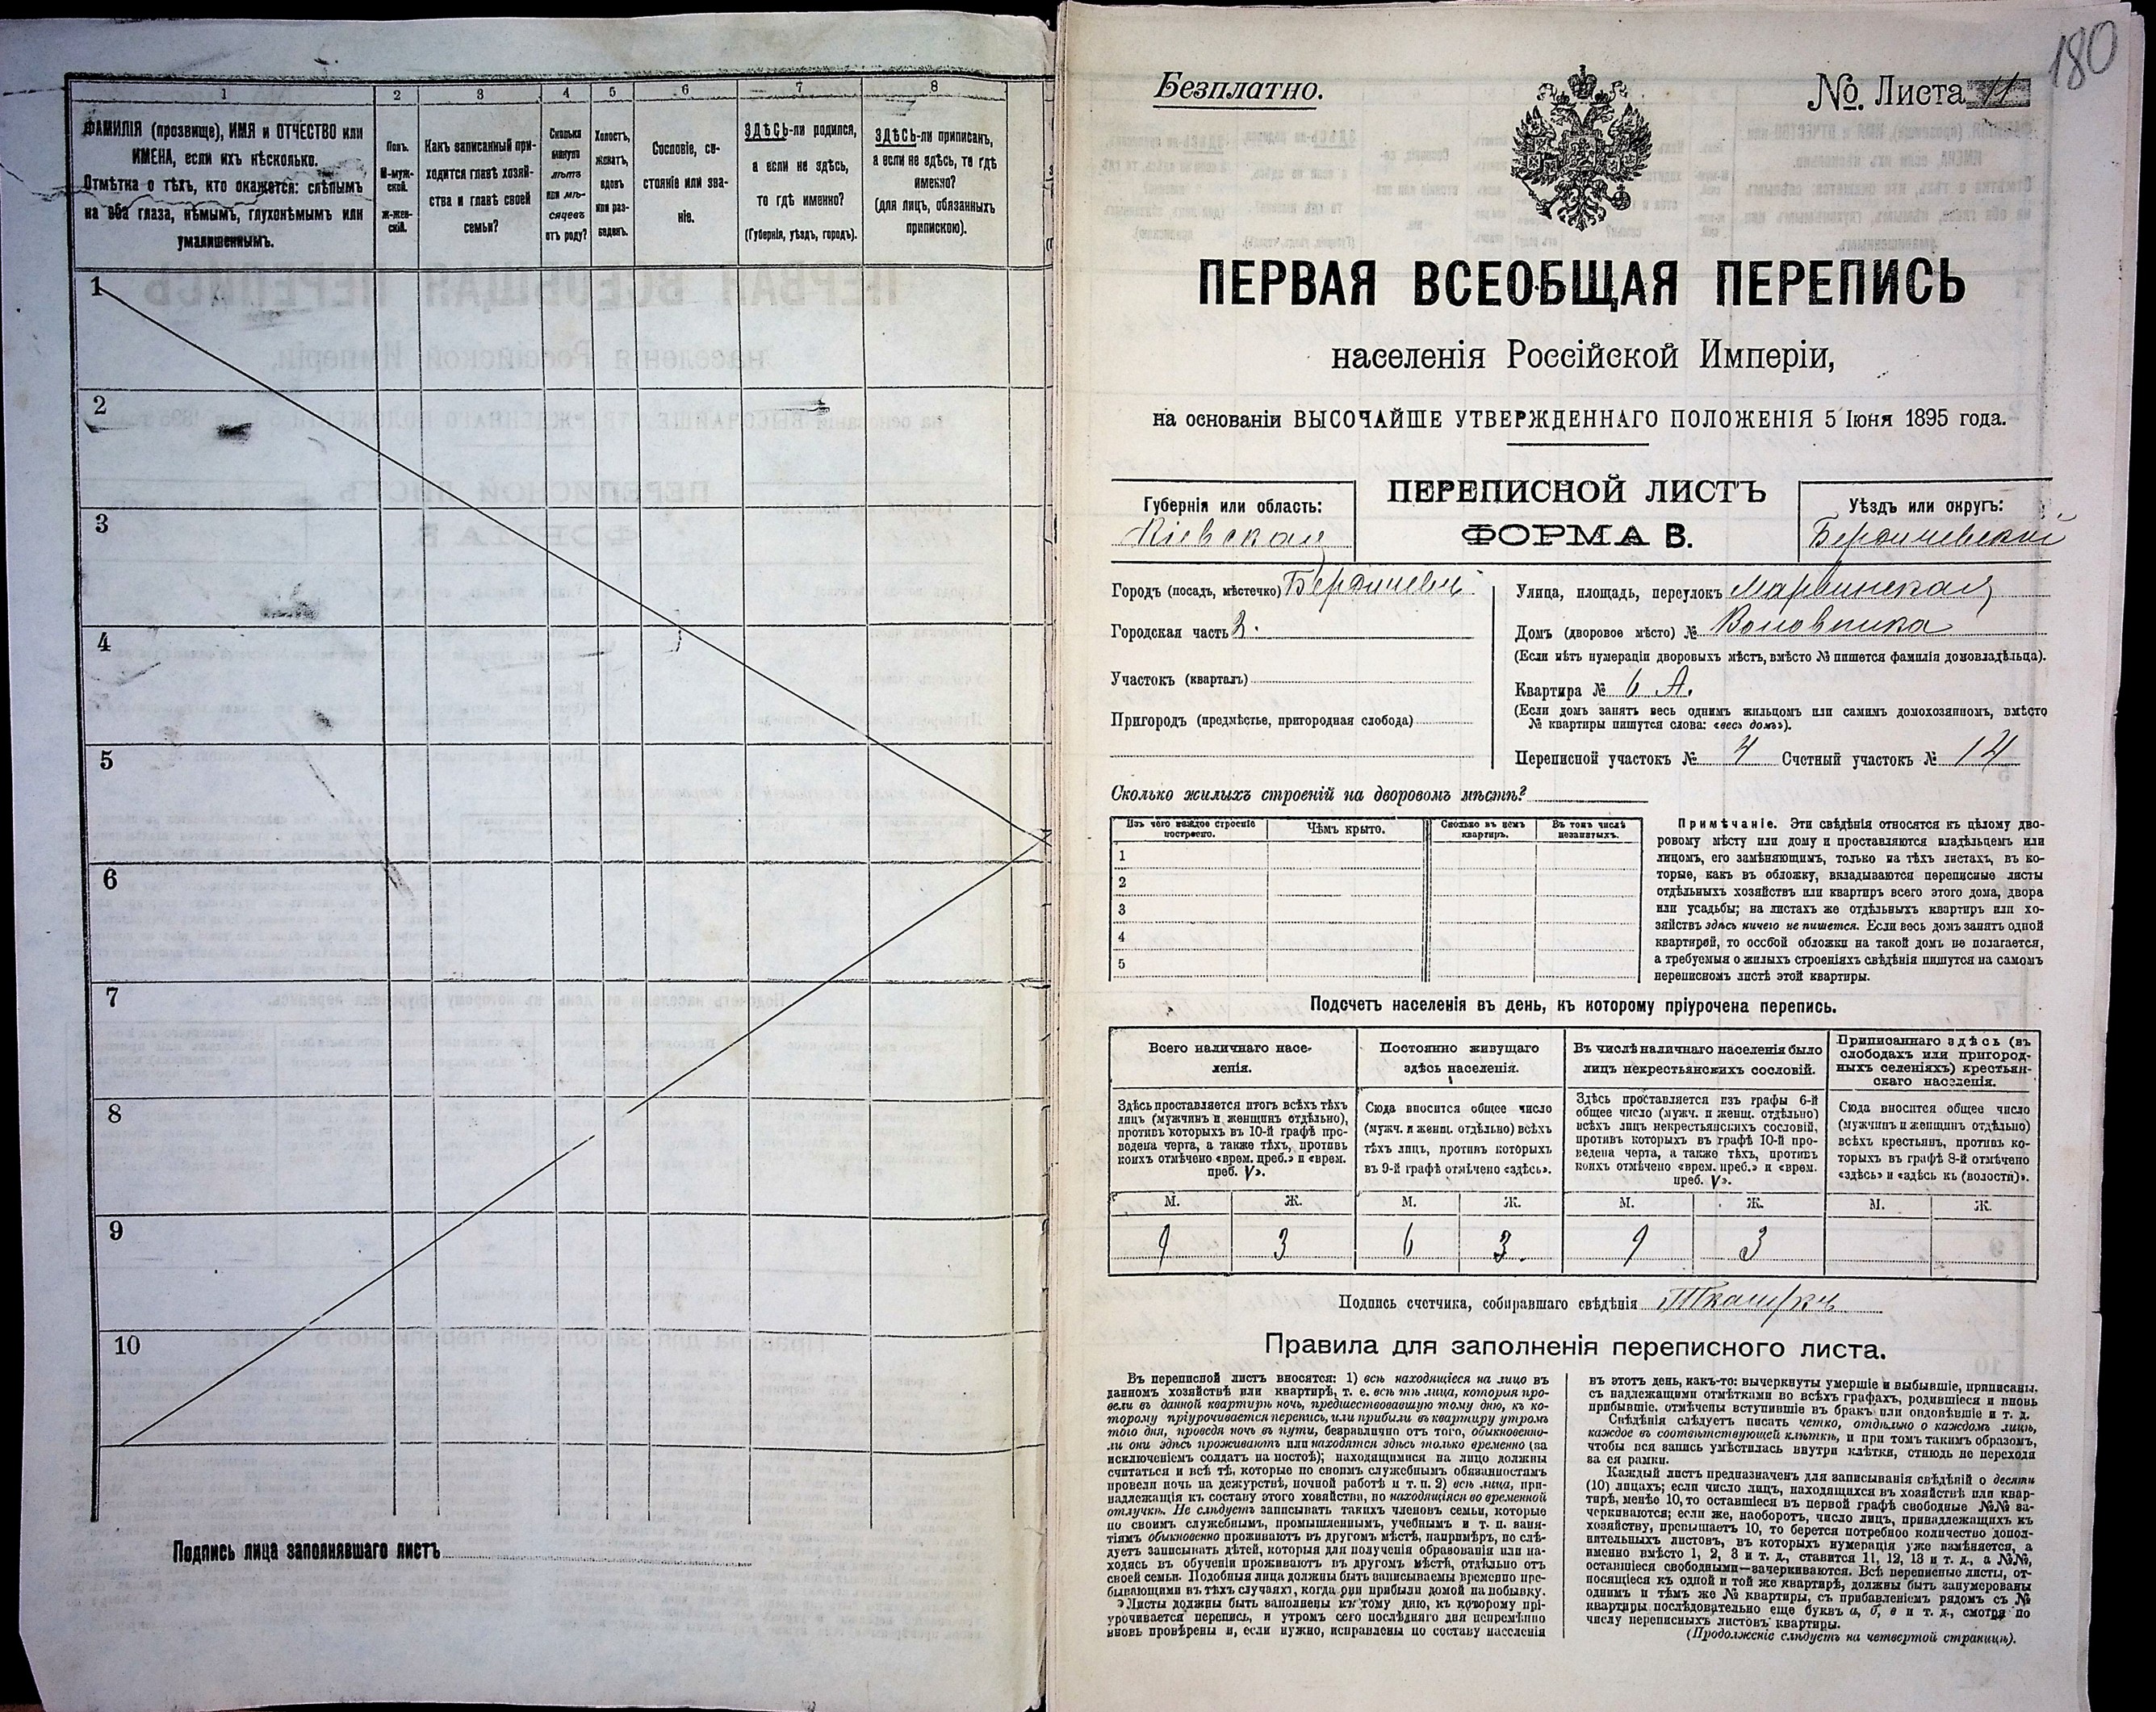 1 2 3 4 5 6 7 8
ФАМИЛІЯ (прозвище), ИМЯ и ОТЧЕСТВО или
ИМЕНА, если ихъ нѣсколько.
Отмѣтка о тѣхъ, кто окажется: слѣпымъ
на оба глаза, нѣмымъ, глухонѣмымъ или
умалишеннымъ.
Полъ.
М-муж-
ской.
Ж-жен-
скій.
Какъ записанный при-
ходится главѣ хозяй-
ства и главѣ своей
семьи?
Сколько
минуло
лѣтъ
или мѣ-
сяцевъ
отъ роду?
Холостъ,
женатъ,
вдовъ
или раз-
веденъ.
Сословіе, со-
стояніе или зва-
ніе.
ЗДѢСЬ-ли родился,
а если не здѣсь,
то гдѣ именно?
(Губернія, уѣздъ, городъ).
ЗДѢСЬ-ли приписанъ,
а если не здѣсь, то гдѣ
именно?
(для лицъ, обязанныхъ
припискою).
1
2
3
4
5
6
7
8
9
10
Подпись лица заполнявшаго листъ
180
Безплатно.
№. Листа 11
ПЕРВАЯ ВСЕОБЩАЯ ПЕРЕПИСЬ
населенія Россійской Имперіи,
на основаніи ВЫСОЧАЙШЕ УТВЕРЖДЕННАГО ПОЛОЖЕНІЯ 5 Іюня 1895 года.
Губернія или область:
Кіевская
ПЕРЕПИСНОЙ ЛИСТЪ
ФОРМА В.
Уѣздъ или округъ:
Бердичевскій
Городъ (посадъ, мѣстечко) Бердичевъ
Городская часть 2.
Участокъ (кварталъ)
Пригородъ (предмѣстье, пригородная слобода)
Улица, площадь, переулокъ
Домъ (дворовое мѣсто) №
(Если нѣтъ нумераціи дворовыхъ мѣстъ, вмѣсто № пишется фамилія домовладѣльца).
Квартира № 6 А.
(Если домъ занятъ весь однимъ жильцомъ или самимъ домохозяиномъ, вмѣсто
№ квартиры пишутся слова: «весь домъ»).
Переписной участокъ № 4 Счетный участокъ № 14
Сколько жилыхъ строеній на дворовомъ мѣстѣ?
Изъ чего каждое строеніе
построено.
Чѣмъ крыто.
Сколько въ немъ
квартиръ.
Въ томъ числѣ
незанятыхъ.
1
2
3
4
5
Примѣчаніе. Эти свѣдѣнія относятся къ цѣлому дво-
ровому мѣсту или дому и проставляются владѣльцемъ или
лицомъ, его замѣняющимъ, только на тѣхъ листахъ, въ ко-
торые, какъ въ обложку, вкладываются переписные листы
отдѣльныхъ хозяйствъ или квартиръ всего этого дома, двора
или усадьбы; на листахъ же отдѣльныхъ квартиръ или хо-
зяйствъ здѣсь ничего не пишется. Если весь домъ занятъ одной
квартирой, то особой обложки на такой домъ не полагается,
а требуемыя о жилыхъ строеніяхъ свѣдѣнія пишутся на самомъ
переписномъ листѣ этой квартиры.
Подсчетъ населенія въ день, къ которому пріурочена перепись.
Всего наличнаго насе-
ленія.
Здѣсь проставляется итогъ всѣхъ тѣхъ
лицъ (мужчинъ и женщинъ отдѣльно),
противъ которыхъ въ 10-й графѣ про-
ведена черта, а также тѣхъ, противъ
коихъ отмѣчено «врем. преб.» и «врем.
преб. V».
Постоянно живущаго
здѣсь населенія.
Сюда вносится общее число
(мужч. и женщ. отдѣльно) всѣхъ
тѣхъ лицъ, противъ которыхъ
въ 9-й графѣ отмѣчено «здѣсь».
Въ числѣ наличнаго населенія было
лицъ некрестьянскихъ сословій.
Здѣсь проставляется изъ графы 6-й
общее число (мужч. и женщ. отдѣльно)
всѣхъ лицъ некрестьянскихъ сословій,
противъ которыхъ въ графѣ 10-й про-
ведена черта, а также тѣхъ, противъ
коихъ отмѣчено «врем. преб.» и «врем.
преб. V».
Приписаннаго здѣсь (въ
слободахъ или пригород-
ныхъ селеніяхъ) крестьян-
скаго населенія.
Сюда вносится общее число
(мужчинъ и женщинъ отдѣльно)
всѣхъ крестьянъ, противъ ко-
торыхъ въ графѣ 8-й отмѣчено
«здѣсь» и «здѣсь къ (волости)».
М. Ж. М. Ж. М. Ж. М. Ж.
9 3 6 3. 9 3
Подпись счетчика, собиравшаго свѣдѣнія
Правила для заполненія переписного листа.
Въ переписной листъ вносятся: 1) всѣ находящіеся на лицо въ
данномъ хозяйствѣ или квартирѣ, т. е. всѣ тѣ лица, которыя про-
вели въ данной квартирѣ ночь, предшествовавшую тому дню, къ ко-
торому пріурочивается перепись, или прибыли въ квартиру утромъ
того дня, проведя ночь въ пути, безразлично отъ того, обыкновенно-
ли они здѣсь проживаютъ или находятся здѣсь только временно (за
исключеніемъ солдатъ на постоѣ); находящимися на лицо должны
считаться и всѣ тѣ, которые по своимъ служебнымъ обязанностямъ
провели ночь на дежурствѣ, ночной работѣ и т. п. 2) всѣ лица, при-
надлежащія къ составу этого хозяйства, но находящіяся во временной
отлучкѣ. Не слѣдуетъ записывать такихъ членовъ семьи, которые
по своимъ служебнымъ, промышленнымъ, учебнымъ и т. п. заня-
тіямъ обыкновенно проживаютъ въ другомъ мѣстѣ, напримѣръ, не слѣ-
дуетъ записывать дѣтей, которыя для полученія образованія или на-
ходясь въ обученіи проживаютъ въ другомъ мѣстѣ, отдѣльно отъ
своей семьи. Подобныя лица должны быть записываемы временно пре-
бывающими въ тѣхъ случаяхъ, когда они прибыли домой на побывку.
Листы должны быть заполнены къ тому дню, къ которому прі-
урочивается перепись, и утромъ сего послѣдняго дня непремѣнно
вновь провѣрены и, если нужно, исправлены по составу населенія
въ этотъ день, какъ-то: вычеркнуты умершіе и выбывшіе, приписаны,
съ надлежащими отмѣтками во всѣхъ графахъ, родившіеся и вновь
прибывшіе, отмѣчены вступившіе въ бракъ или овдовѣвшіе и т. д.
Свѣдѣнія слѣдуетъ писать четко, отдѣльно о каждомъ лицѣ,
каждое въ соотвѣтствующей клѣткѣ, и при томъ такимъ образомъ,
чтобы вся запись умѣстилась внутри клѣтки, отнюдь не переходя
за ея рамки.
Каждый листъ предназначенъ для записыванія свѣдѣній о десяти
(10) лицахъ; если число лицъ, находящихся въ хозяйствѣ или квар-
тирѣ, менѣе 10, то оставшіеся въ первой графѣ свободные №№ за-
черкиваются; если же, наоборотъ, число лицъ, принадлежащихъ къ
хозяйству, превышаетъ 10, то берется потребное количество допол-
нительныхъ листовъ, въ которыхъ нумерація уже измѣняется, а
именно вмѣсто 1, 2, 3 и т. д., ставится 11, 12, 13 и т. д., а №№,
оставшіеся свободными—зачеркиваются. Всѣ переписные листы, от-
носящіеся къ одной и той же квартирѣ, должны быть занумерованы
однимъ и тѣмъ же № квартиры, съ прибавленіемъ рядомъ съ №
квартиры послѣдовательно еще буквъ а, б, в и т. д., смотря по
числу переписныхъ листовъ квартиры.
(Продолженіе слѣдуетъ на четвертой страницѣ).